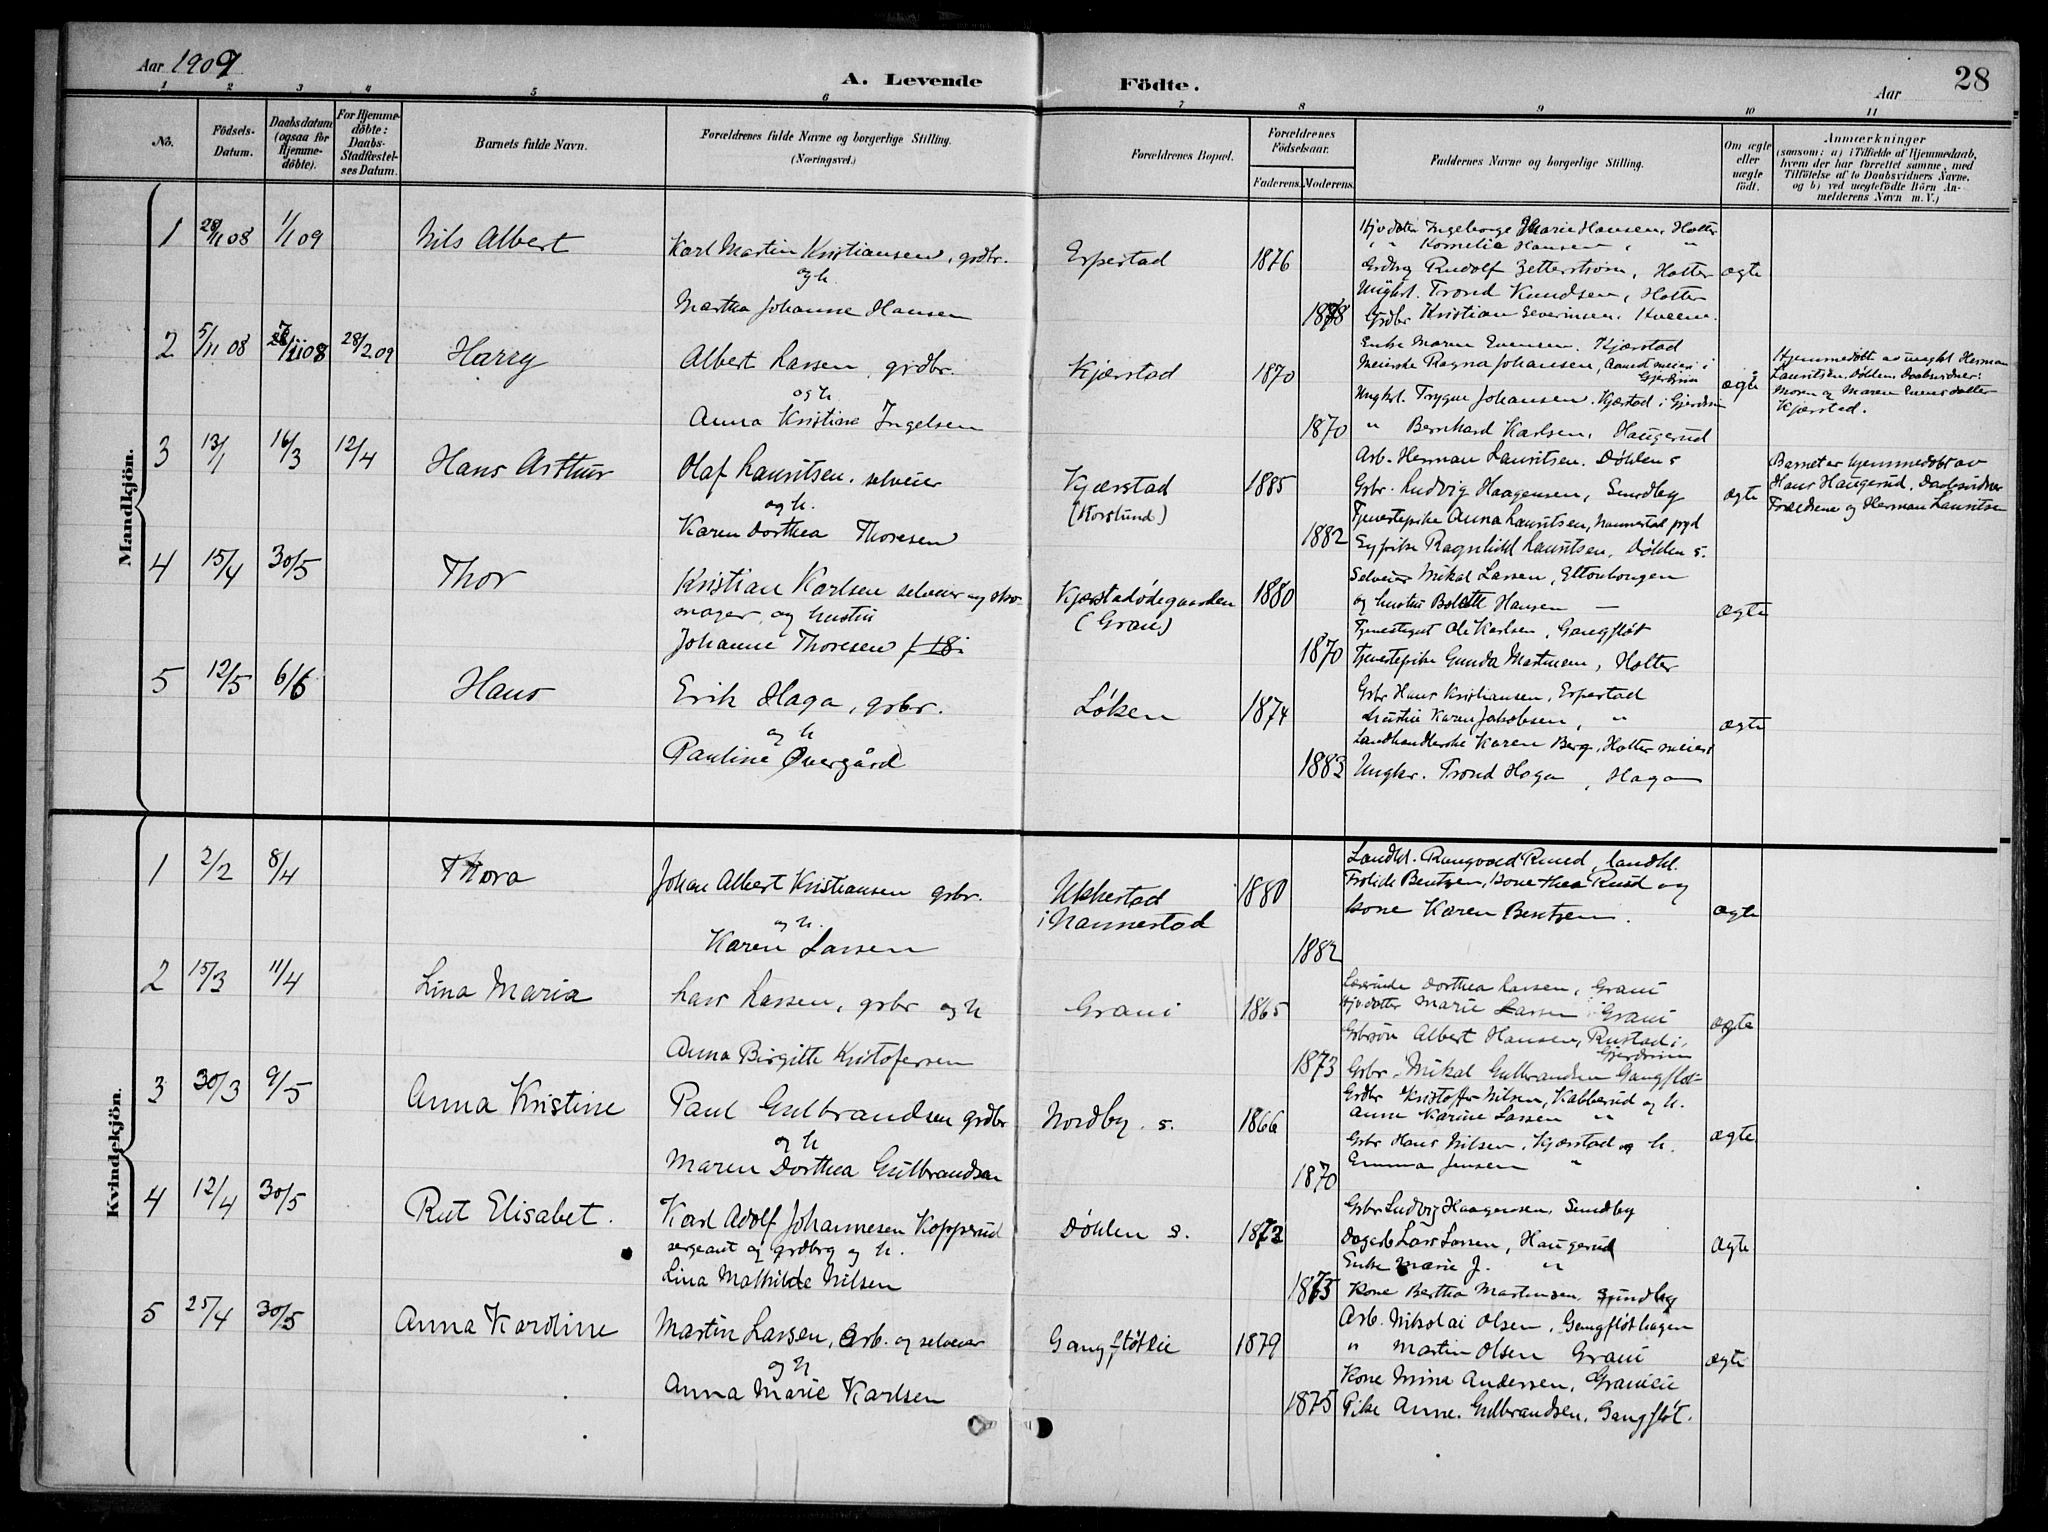 Aar 1909
A. Levende Födte.
Aar
28
1 2 3 4 5 6 7 8 9 10 11
No.
Födsels-Datum.
Daabsdatum (ogsaa for Hjemmedöbte).
For Hjemmedöbte: Daabs-Stadfæstelses Datum.
Barnets fulde Navn.
Forældrenes fulde Navne og borgerlige Stilling.
(Næringsvei.)
Forældrenes Bopæl.
Forældrenes Födselsaar.
Faderens. Moderens.
Faddernes Navne og borgerlige Stilling.
Om ægte eller uægte födt.
Anmærkninger
(saasom: a) i Tilfælde af Hjemmedaab, hvem der har forrettet samme, med Tilföielse af to Daabsvidners Navne, og b) ved uægtefödte Börn Anmelderens Navn m. V.)
Mandkjön.
1 28/11 08 1/1 09 Nils Albert
Karl Martin Kristiansen, grdbr.
og h.
Martha Johanne Hansen
Erpestad 1876 1878
Hjv datter Ingeborge Marie Hansen, Holter
" " Kornelia Hansen, "
Grdbrg Rudolf Zetterstrøm, Holter
Ungkrl. Trond Knudsen, Holter
Grdbr Kristian Severinsen, Kveen.
ægte
2 5/11 08 08 28/2 09 Harry
Albert Larsen, grdbr.
og h
Anna Kristine Ingelsen
Kjærstad 1870 1870
Enke Maren Evensen. Kjærstad
Meierske Ragna Johansen, Aamot meieri i Gjerdrum
Ungkrl. Trygve Johansen. Kjærstad i Gjerdrum
" Bernhard Karlsen, Haugerud
Arb. Herman Lauritsen. Døhlen s
ægte
Hjemmedøbt av ungkl Herman
Lauritsen, Døhlen, Daabsvidner:
Moren og Maren Evensdatter
Kjærstad.
3 13/1 16/3 12/4 Hans Arthur
Olaf Lauritsen. selveier
og h.
Karen Dorthea Thoresen
Kjærstad
(Korslund)
1885 1882
Gsbr. Ludvig Haagensen, Sundby
Tjenestepike Anna Lauritsen, Nannestad prgd
Sypike Ragnhild Lauritsen, Døhlen s.
ægte
Barnet er hjemmedøbt av
Hans Haugerud, Daabsvidner
Forældrene og Herman Lauritsen
4 15/4 30/5 Thor
Kristian Karlsen selveier og sko-
mager, og hustru
Johanne Thoresen
Kjærstadødegaarden
(Gran)
1880 1870
Selveier Mikal Larsen, Eltonbongen
og hustru Bolette Hansen —
Tjenestegut Ole Karlsen, Gangfløt
Tjenestepike Gunda Martinsen, Holter
ægte
5 12/5 6/6 Hans
Erik Haga, gsbr.
og h
Pauline Øvergård
Løken 1874 1883
Gsbr Hans Kristiansen, Erpestad
hustru Karen Jakobsen, "
Landhandlerske Karen Berg, Holter meieri
Ungkr. Trond Haga, Haga
ægte
Kvindekjön.
1 2/2 8/4 Thora
Johan Albert Kristiansen gsbr.
og h.
Karen Larsen
Ukkestad
i Nannestad
1880 1882
Landhl. Rangvald Ruud, landhl.
Frolide Bentzen, kone Thea Ruud og
kone Karen Bentzen.
ægte
2 15/3 11/4 Lina Maria
Lars Larsen, gsbr og h
Anna Birgitte Kristofersen
Grani 1865 1873
Lærerinde Dorthea Larsen, Grani
Hjv datter Marie Larsen Grani
Gsbrsøn Albert Hansen, Rustad i Gjerdrum
Gsbr. Mikal Gulbrandsen Gangfløt
ægte
3 30/3 9/5 Anna Kristine
Paul Gulbrandsen grdbr
og h
Maren Dorthea Gulbrandsen
Nordby s. 1866 1870
Grdbr Kristoffer Nilsen, Kabberud og h.
Anne Karine Larsen "
Gsbr Hans Nilsen, Kjærstad og h.
Emma Jensen "
ægte
4 12/4 30/5 Rut Elisabet.
Karl Adolf Johannesen Kopperud
sergeant og grdbrg og h.
Lina Mathilde Nilsen
Døhlen s. 1873 1875
Gsbr Ludvig Haagensen, Sundby
Dagarb Lars Larsen, Haugerud
Enke Marie J. "
Kone Bertha Martinsen, Sundby
ægte
5 25/4 30/5 Anna Karoline
Martin Larsen, Arb. og selveier
og h
Anna Marie Karlsen
Gangfløteie 1879 1875
Arb. Nikolai Olsen, Gangfløthagen
" Martin Olsen Grani
Kone Mina Andersen, Granieie
Pike Anne Gulbrandsen, Gangfløt.
ægte